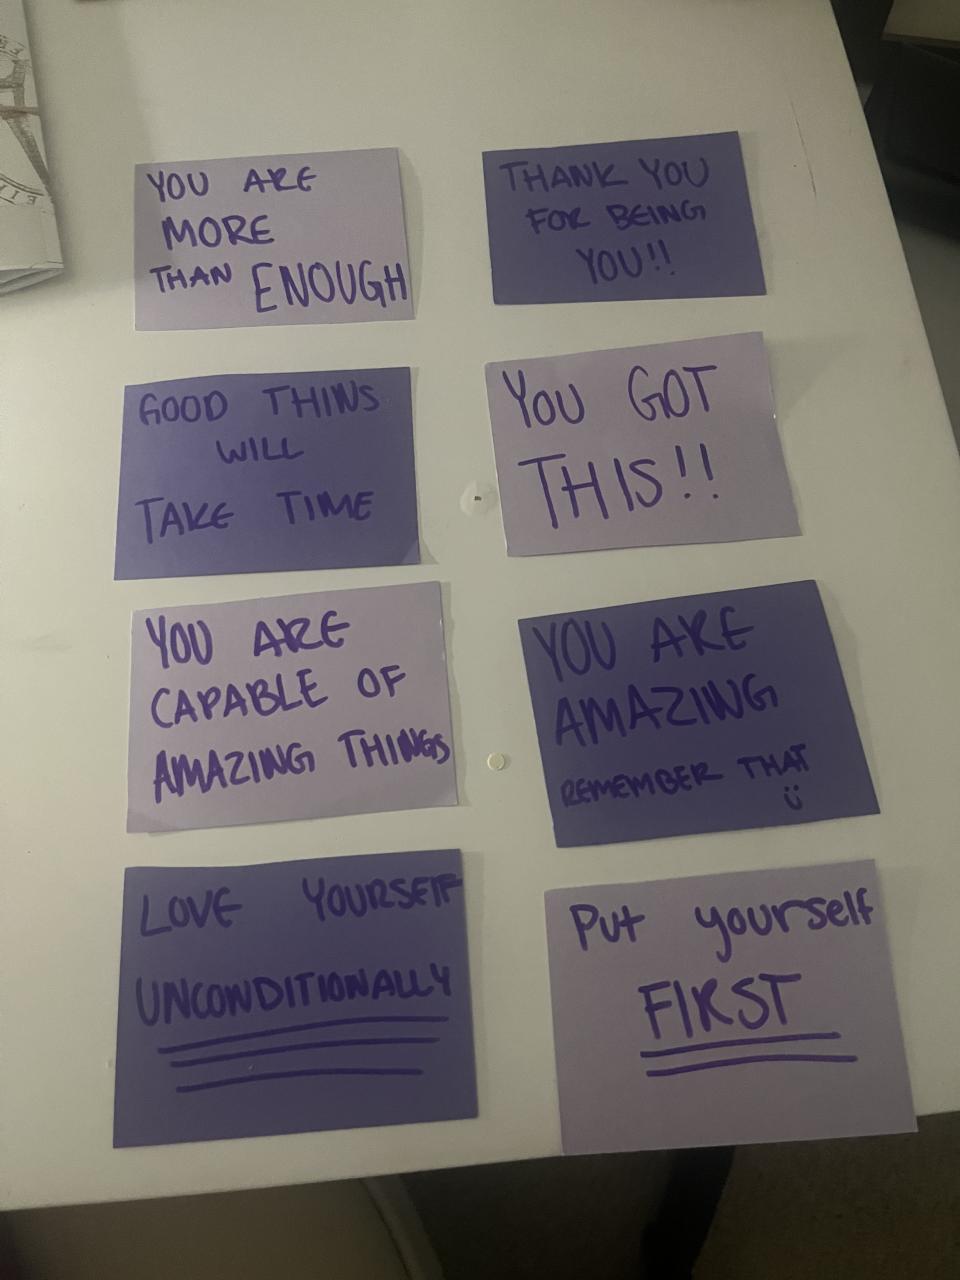 YOU ARE
MORE
THAN ENOUGH
THANK YOU
FOR BEING
YOU!!
GOOD THINS
WILL
TAKE TIME
YOU GOT
THIS!!
YOU ARE
CAPABLE OF
AMAZING THINGS
YOU ARE
AMAZING
REMEMBER THAT
Ü
LOVE YOURSELF
UNCONDITIONALLY
Put yourself
FIRST